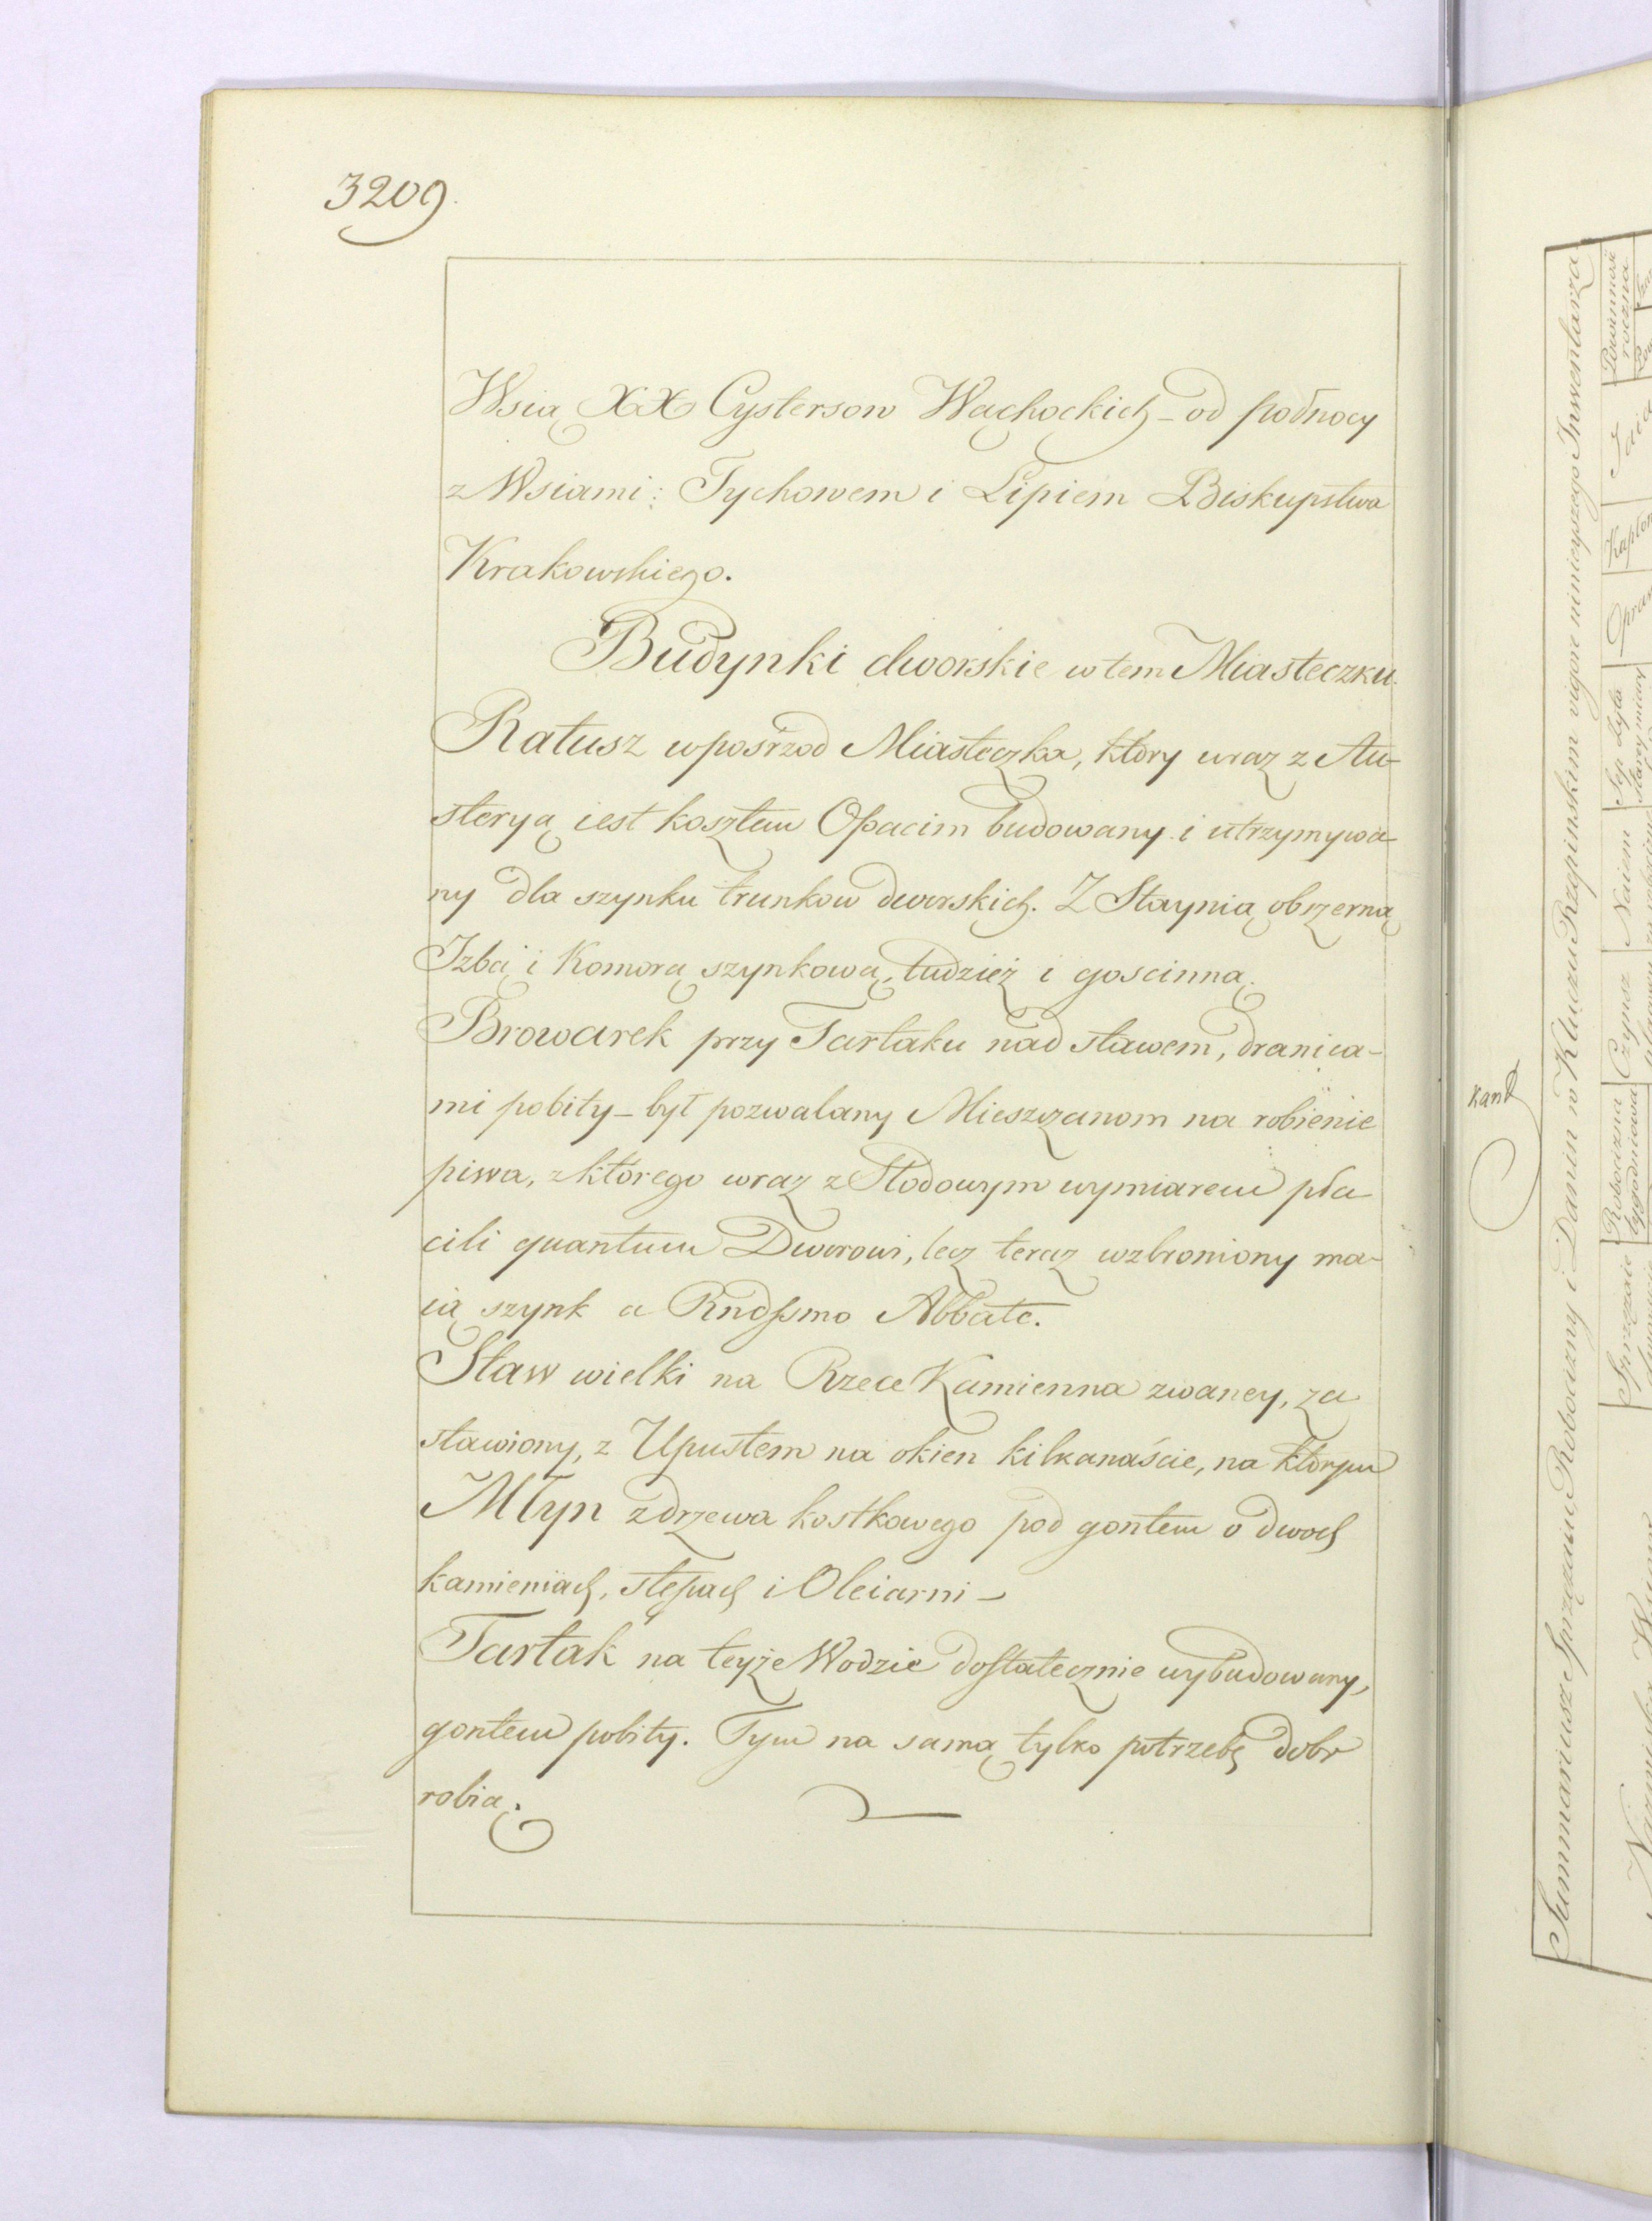 3209.
Wsią XX Cystersow Wąchockich – od połnocy
z Wsiami: Tychowem i Lipiem Biskupstwa
Krakowskiego.
Budynki dworskie w tem Miasteczku.
Ratusz wpośrzod Miasteczka, ktory wraz z Au-
steryą iest kosztem Opacim budowany i utrzymywa-
ny dla szynku trunkow dworskich. Z Staynią obszerną
Izbą i Komorą szynkową, tudzież i goscinną.
Browarek przy Tartaku nad stawem, dranica-
mi pobity – był pozwalany Mieszczanom na robienie
piwa, z którego wraz z Słodowym wymiarem pła
cili quantum Dworowi, lecz teraz wzbroniony ma-
ią szynk a Rndssmo Abbate.
Staw wielki na Rzece Kamienna zwaney, za
stawiony, z Upustem na okien kilkanaście, na ktorym
Młyn z drzewa kostkowego pod gontem o dwoch
kamieniach, stępach i Oleiarni –
Tartak na teyże Wodzie dostatecznie wybudowany,
gontem pobity. Tym na samą tylko potrzebę dobr
robią.
Summariusz Sprzężaiu, Robocizny i Danin w Kluczu Rzepinskim vigore ninieyszego Inwentarza
Sprzężaie
Robocizna
tygodniowa
Czynsz
Naiem
Sep żyta
starey miary
Jaia
Powinność
roczna